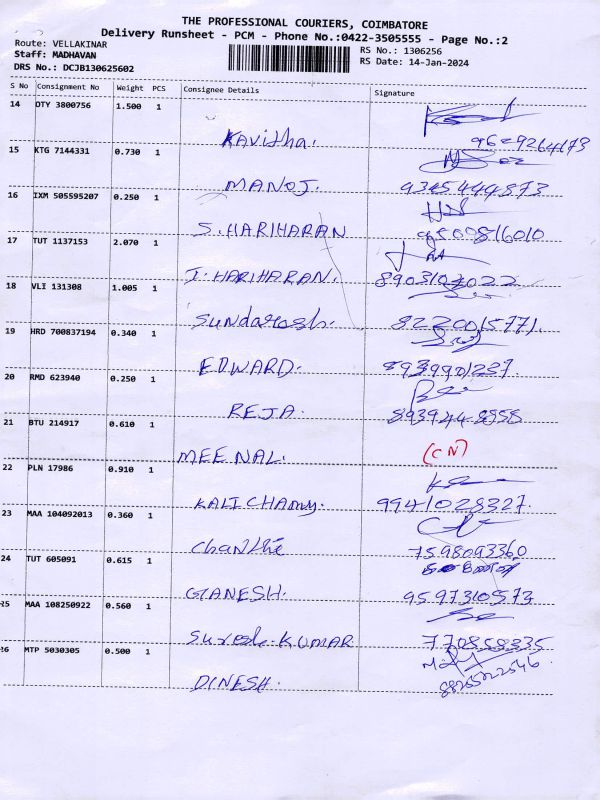 THE PROFESSIONAL COURIERS, COIMBATORE
Delivery Runsheet - PCM - Phone No.:0422-3505555 - Page No.:2
Route: VELLAKINAR
RS No.: 1306256
Staff: MADHAVAN
RS Date: 14-Jan-2024
DRS No.: DCJB130625602
S No Consignment No Weight PCS Consignee Details Signature
14 OTY 3800756 1.500 1
Kavitha.
15 KTG 7144331 0.730 1
MANOJ. 9345444873
16 IXM 505595207 0.250 1
S. HARIHARAN 9500816010
17 TUT 1137153 2.070 1
J. HARIHARAN. 8903107022
18 VLI 131308 1.005 1
8220015771.
19 HRD 700837194 0.340 1
EDWARD. 8939901237
20 RMD 623940 0.250 1
REJA. 893944-8858
21 BTU 214917 0.610 1
MEENAL. (CN)
22 PLN 17986 0.910 1
KALICHAMY. 9941028327
23 MAA 104092013 0.360 1
7598093360
24 TUT 605091 0.615 1
GANESH. 9597310573
25 MAA 108250922 0.560 1
Suresh. KUMAR 770858335
26 MTP 5030305 0.500 1
DINESH.